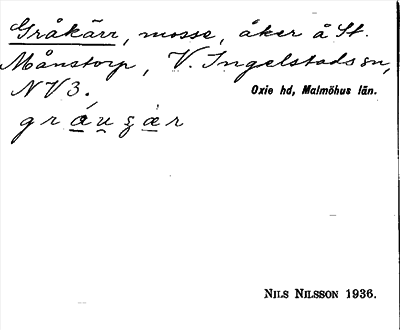 Gråkärr, mosse, åker å St.
Månstorp, V. Ingelstads sn,
NV3.
Oxie hd, Malmöhus län.
NILS NILSSON 1936.